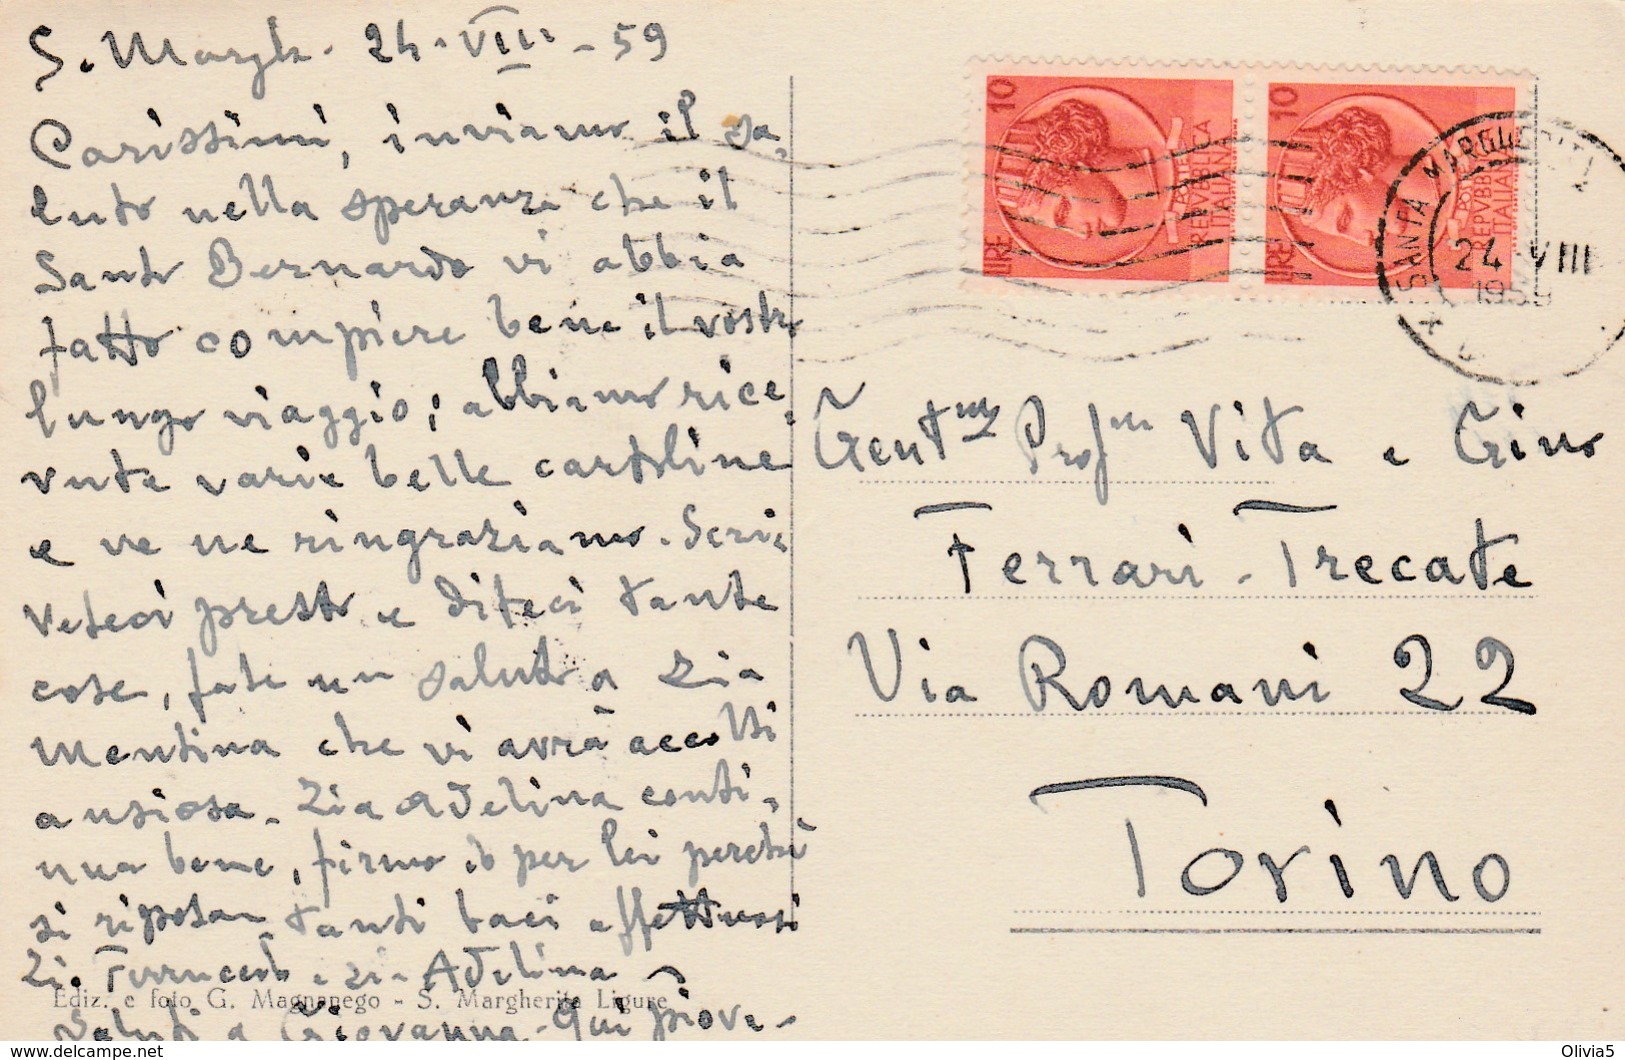 S. Margh. 24-VIII-59
Carissimi, inviamo il sa-
luto nella speranza che il
Santo Bernardo vi abbia
fatto compiere bene il vostro
lungo viaggio; abbiamo rice-
vute varie belle cartoline
e ve ne ringraziamo. Scri-
veteci presto e diteci tante
cose, fate un saluto a zia
Mentina che vi avrà accolti
ansiosa. Zia Adelina conti-
nua bene, firmo io per lei perché
si riposa tanti baci affettuosi
Zio Ferruccio e zia Adelina
Ediz. e foto G. Magnanego - S. Margherita Ligure
Saluti a Giovanna - Qui piove -
LIRE 10
POSTE
REPVBBLICA
ITALIANA
LIRE 10
POSTE
REPVBBLICA
ITALIANA
SANTA MARGHERITA L
24 VIII
1959
Gent.mi Prof.ri Vita e Gino
Ferrari-Trecate
Via Romani 22
Torino
delcampe.net
Olivia5